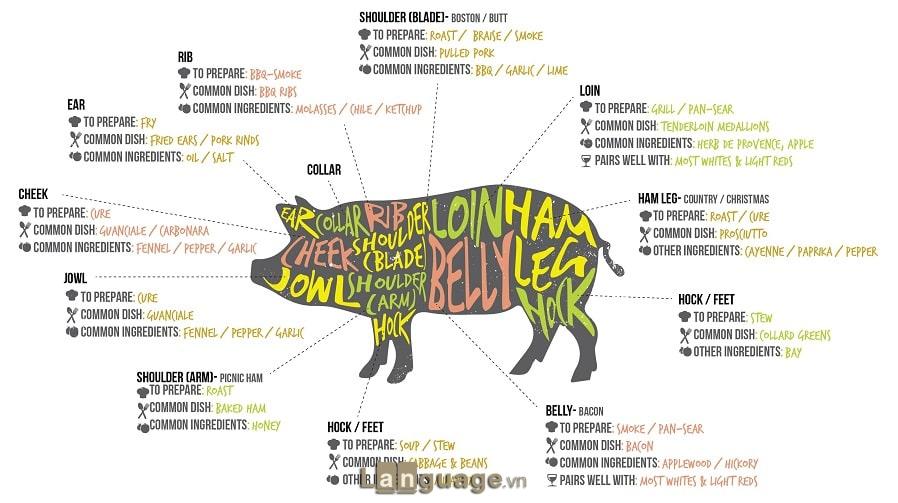 SHOULDER (BLADE)- BOSTON / BUTT
TO PREPARE: ROAST / BRAISE / SMOKE
COMMON DISH: PULLED PORK
COMMON INGREDIENTS: BBQ / GARLIC / LIME
RIB
TO PREPARE: BBQ-SMOKE
COMMON DISH: BBQ RIBS
COMMON INGREDIENTS: MOLASSES / CHILE / KETCHUP
LOIN
TO PREPARE: GRILL / PAN-SEAR
COMMON DISH: TENDERLOIN MEDALLIONS
COMMON INGREDIENTS: HERB DE PROVENCE, APPLE
PAIRS WELL WITH: MOST WHITES & LIGHT REDS
EAR
TO PREPARE: FRY
COMMON DISH: FRIED EARS / PORK RINDS
COMMON INGREDIENTS: OIL / SALT
COLLAR
CHEEK
TO PREPARE: CURE
COMMON DISH: GUANCIALE / CARBONARA
COMMON INGREDIENTS: FENNEL / PEPPER / GARLIC
HAM LEG- COUNTRY / CHRISTMAS
TO PREPARE: ROAST / CURE
COMMON DISH: PROSCIUTTO
OTHER INGREDIENTS: CAYENNE / PAPRIKA / PEPPER
EAR
COLLAR
RIB
SHOULDER
(BLADE)
LOIN
HAM
LEG
CHEEK
JOWL
SHOULDER
(ARM)
BELLY
HOCK
HOCK
JOWL
TO PREPARE: CURE
COMMON DISH: GUANCIALE
COMMON INGREDIENTS: FENNEL / PEPPER / GARLIC
HOCK / FEET
TO PREPARE: STEW
COMMON DISH: COLLARD GREENS
OTHER INGREDIENTS: BAY
SHOULDER (ARM)- PICNIC HAM
TO PREPARE: ROAST
COMMON DISH: BAKED HAM
COMMON INGREDIENTS: HONEY
HOCK / FEET
TO PREPARE: SOUP / STEW
COMMON DISH: CABBAGE & BEANS
OTHER
BELLY- BACON
TO PREPARE: SMOKE / PAN-SEAR
COMMON DISH: BACON
COMMON INGREDIENTS: APPLEWOOD / HICKORY
PAIRS WELL WITH: MOST WHITES & LIGHT REDS
Language.vn